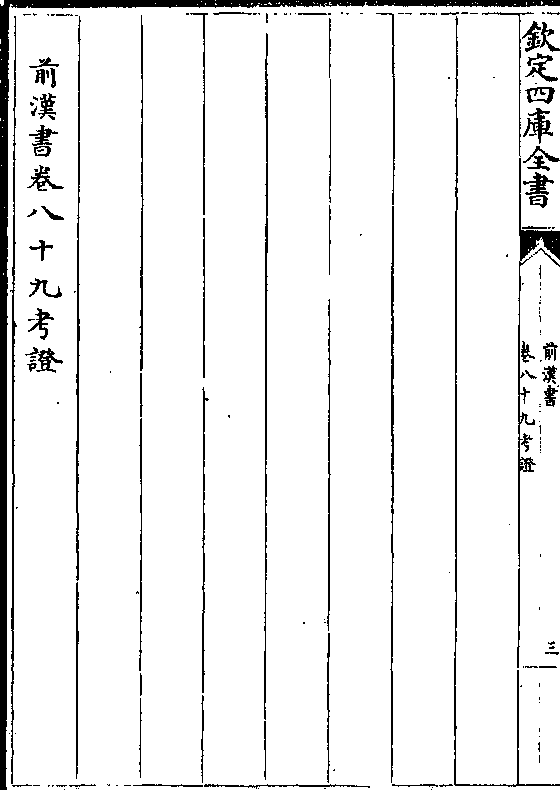 欽定四庫全書
前漢書
卷八十九考證
三
前漢書卷八十九考證